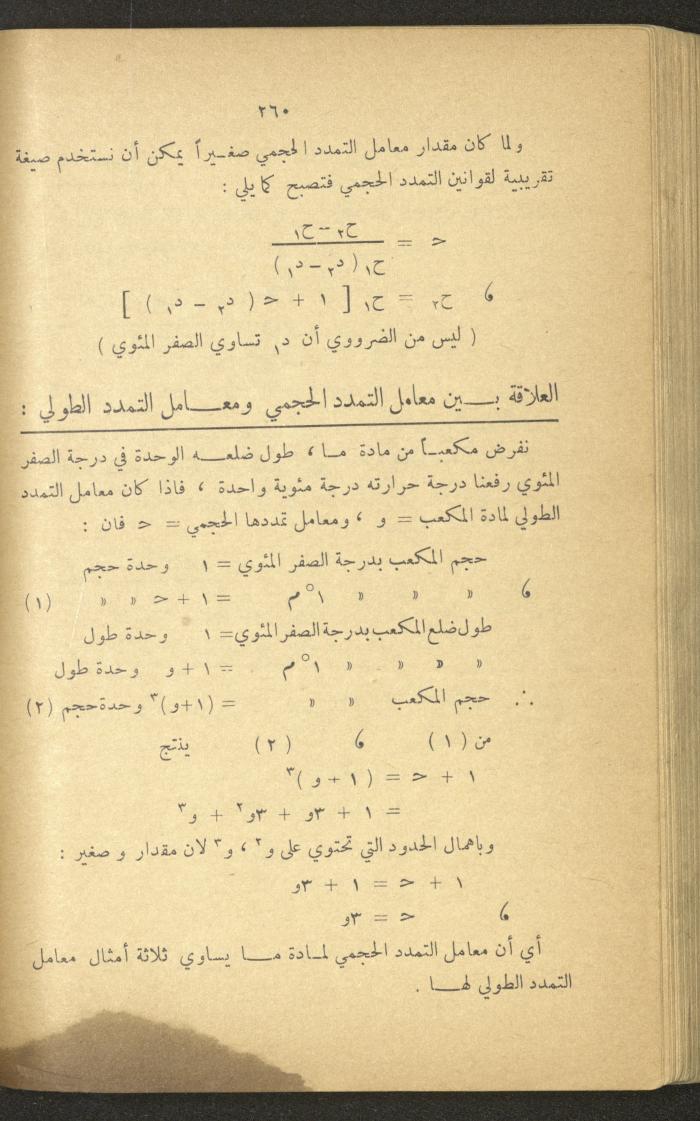 ٢٦٠
ولما كان مقدار معامل التمدد الحجمي صغيراً يمكن أن نستخدم صيغة
تقريبية لقوانين التمدد الحجمي فتصبح كما يلي :
ح٢ − ح١
ﺣ = ــــــــــــــــ
ح١ ( د٢ − د١ )
6 ح٢ = ح١ [ ١ + ﺣ ( د٢ − د١ ) ]
( ليس من الضرووي أن د١ تساوي الصفر المئوي )
العلاقة بـــين معامل التمدد الحجمي ومعـــامل التمدد الطولي :
نفرض مكعبـاً من مادة مـا ، طول ضلعـــه الوحدة في درجة الصفر
المئوي رفعنا درجة حرارته درجة مئوية واحدة ، فاذا كان معامل التمدد
الطولي لمادة المكعب = و ، ومعامل تمددها الحجمي = ﺣ فان :
حجم المكعب بدرجة الصفر المئوي = ١ وحدة حجم
6 » » » ١°م = ١ + ﺣ » » (١)
طول ضلع المكعب بدرجة الصفر المئوي = ١ وحدة طول
» » » » ١°م = ١ + و وحدة طول
∴ حجم المكعب » » = (١+و)٣ وحدة حجم (٢)
من ( ١ ) 6 ( ٢ ) يذتج
١ + ﺣ = (١ + و )٣
= ١ + ٣و + ٣و٢ + و٣
وباهمال الحدود التي تحتوي على و٢ ، و٣ لان مقدار و صغير :
١ + ﺣ = ١ + ٣و
6 ﺣ = ٣و
أي أن معامل التمدد الحجمي لمـادة مـــا يساوي ثلاثة أمثال معامل
التمدد الطولي لهـــا .